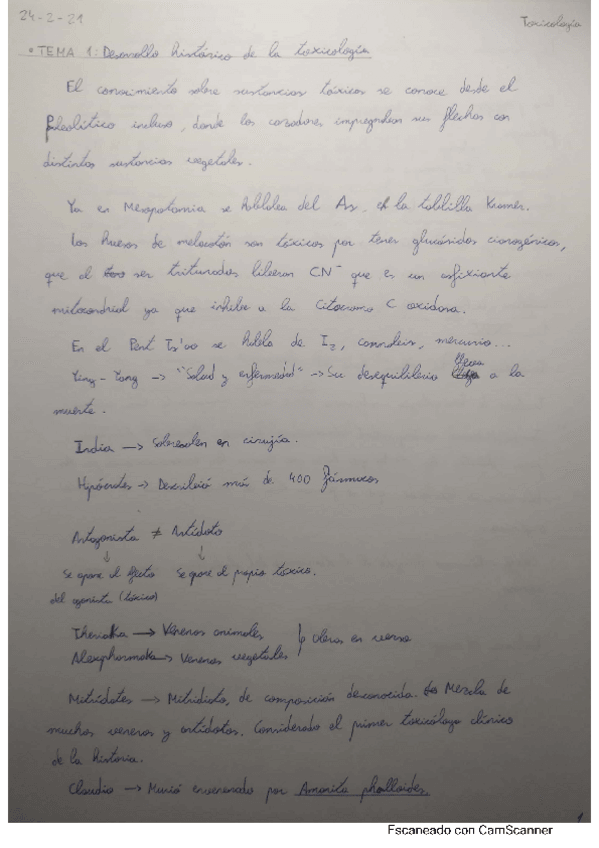 24-2-21
Toxicología
• TEMA 1: Desarrollo histórico de la toxicología
El conocimiento sobre sustancias tóxicas se conoce desde el
Paleolítico incluso, donde los cazadores impregnaban sus flechas con
distintas sustancias vegetales.
Ya en Mesopotamia se hablaba del As, en la tablilla Kramer.
Los huesos de melocotón son tóxicos por tener glucósidos cianogénicos,
que al ser triturados liberan CN⁻ que es un asfixiante
mitocondrial ya que inhibe a la Citocromo C oxidasa.
En el Pent Ts'ao se habla de I₂, cannabis, mercurio...
Ying-Yang → "Salud y enfermedad" → Su desequilibrio lleva a la
muerte.
India → Sobresalen en cirugía.
Hipócrates → Describió más de 400 fármacos
Antagonista ≠ Antídoto
↓ ↓
Se opone al efecto Se opone al propio tóxico.
del agonista (tóxico)
Theriaka → Venenos animales
Alexipharmaka → Venenos vegetales
Obras en verso
Mitrídates → Mitridato, de composición desconocida. Mezcla de
muchos venenos y antídotos. Considerado el primer toxicólogo clínico
de la historia.
Claudio → Murió envenenado por Amanita phalloides
1
Escaneado con CamScanner